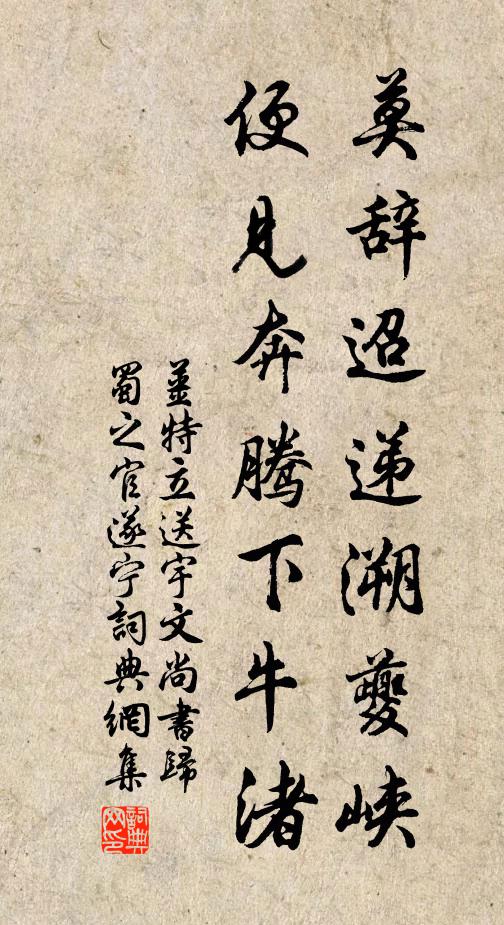 莫辞迢递溯夔峡
便见奔腾下牛渚
姜特立送宇文尚書歸
蜀之官遂宁詞典網集
詞典
网印